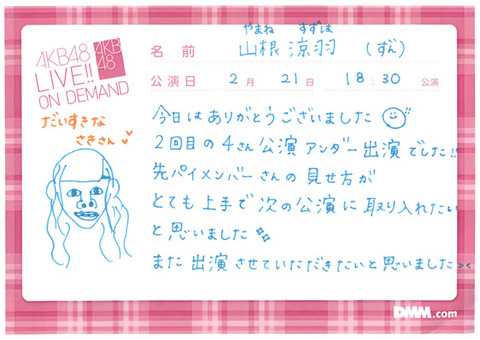 AKB48
LIVE!!
ON DEMAND
AKB
48
やまね すずは
名前 山根 涼羽 (ずん)
公演日 2月 21日 18:30 公演
だいすきな
さきさん
今日はありがとうございました
2回目の4さん公演アンダー出演でした!!
先パイメンバーさんの見せ方が
とても上手で次の公演に取り入れたい
と思いました
また出演させていただきたいと思いました><
DMM.com